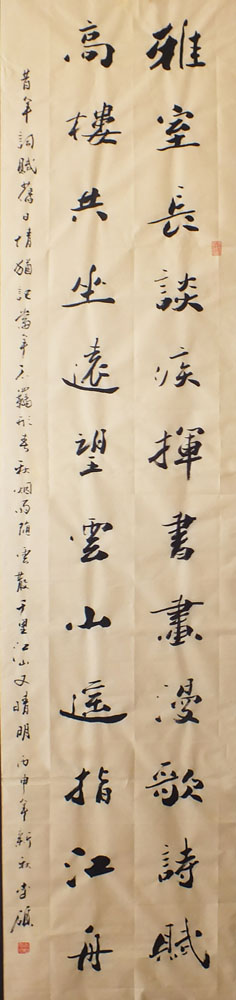 雅室長談疾揮書畫漫歌詩賦
高樓共坐遠望雲山遥指江舟
昔年詞賦舊日情猶記當年不羈形春秋烟雨隨雲散千里江山又晴明丙申年新秋